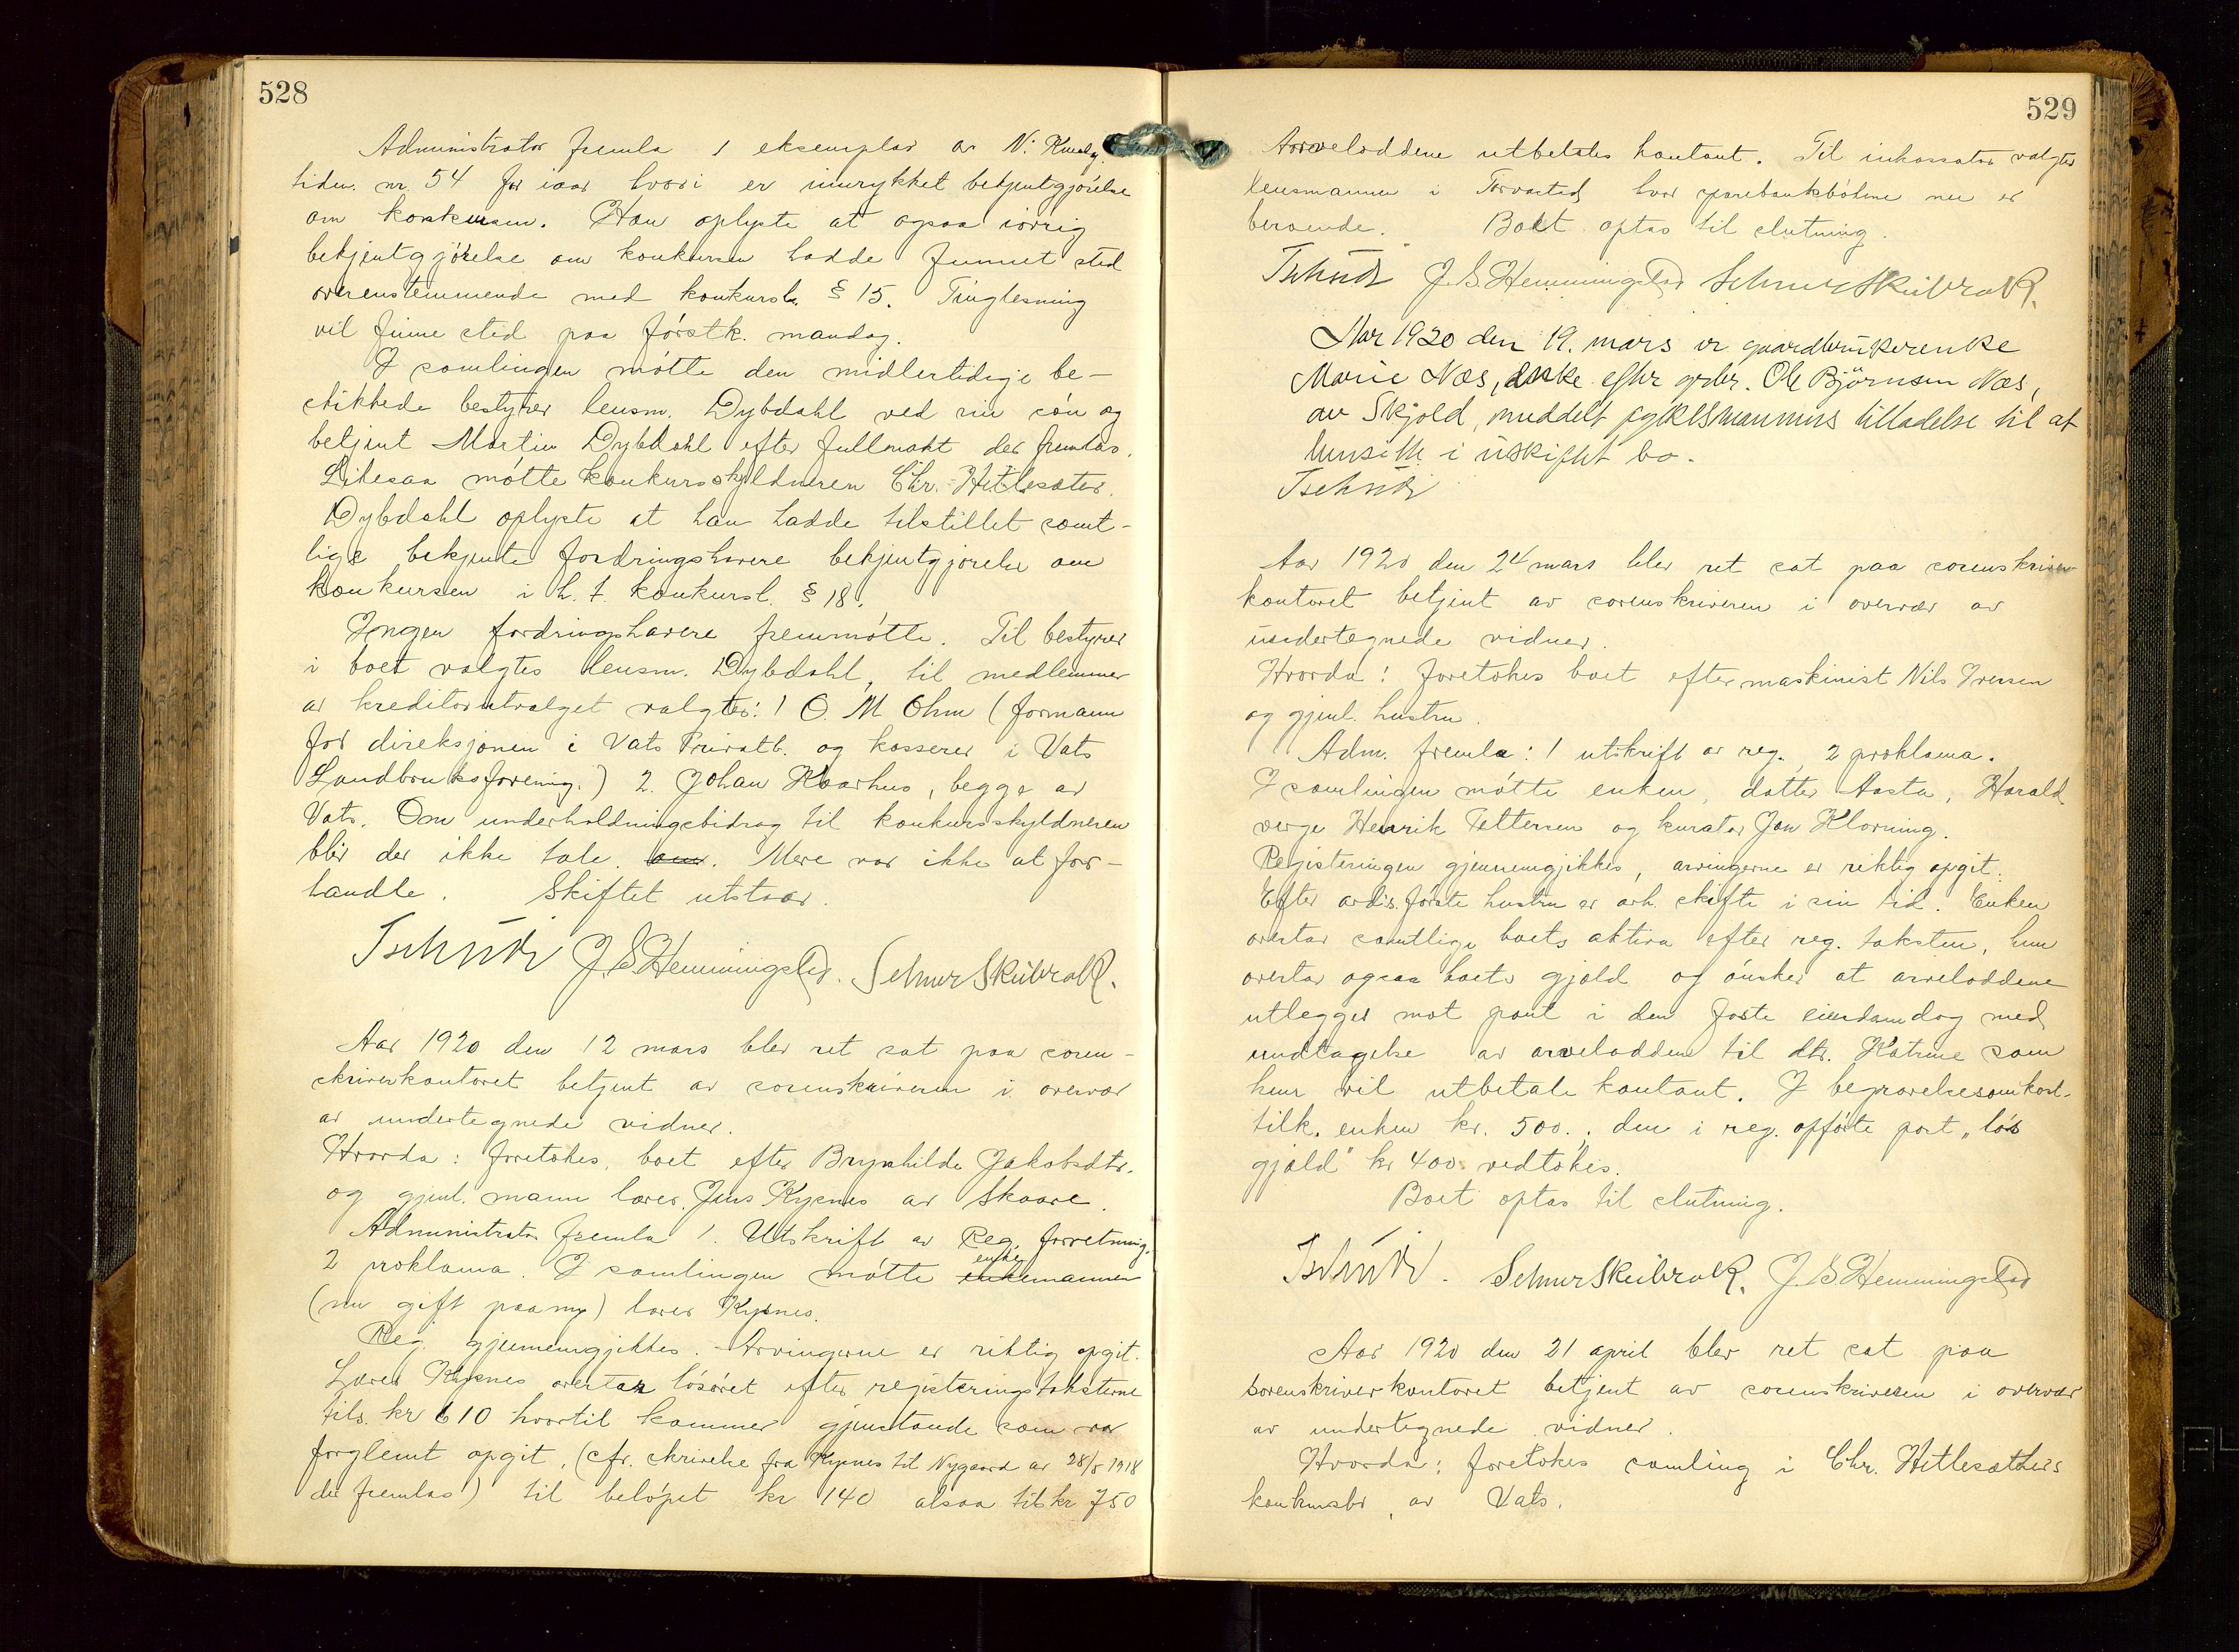 528
Administrator fremla 1 eksemplar av N.
tiden. nr. 54 for iaar hvori er inrykket bekjentgjørelse
om konkursen. Han oplyste at ogsaa iøvrig
bekjentgjørelse om konkursen hadde funnet sted
overenstemmende med konkursl. § 15. Tinglesning
vil finne sted paa førstk. mandag.
I samlingen møtte den midlertidige be-
skikkede bestyrer lensm. Dybdahl ved sin søn og
betjent Martin Dybdahl efter fullmakt der fremlas.
Likesaa møtte konkursskyldneren Chr. Hetlesæter.
Dybdahl oplyste at han hadde tilstillet samt-
lige bekjente fordringshavere bekjentgjørelse om
konkursen i h. t. konkursl. § 18.
Ingen fordringshavere fremmøtte. Til bestyrer
i boet valgtes lensm. Dybdahl, til medlemmer
av kreditorutvalget valgtes: 1 O. M. Ohm (formann
for direksjonen i Vats Privatb. og kasserer i Vats
Landbruksforening.) 2. Johan Kvarhus, begge av
Vats. Om underholdningsbidrag til konkursskyldneren
blir der ikke tale. om. Mere var ikke at for-
handle. Skiftet utstaar.
Tschudi J. S. Hemmingstad. Selmer Skeibrok.
Aar 1920 den 12 mars blev ret sat paa soren-
skriverkontoret betjent av sorenskriveren i overvær
av undertegnede vidner.
Hvorda: foretokes boet efter Brynhilde Jakobsdtr.
og gjenl. mann lærer Jens Kypnes av Skaare.
Administrator fremla 1. Utskrift av Reg. forretning,
2 proklama. I samlingen møtte enkemannen
(nu gift paany) lærer Kypnes.
Reg. gjennemgjikkes. Arvingerne er riktig opgit.
Lærer Kypnes overtar løsøret efter registeringstaksterne
tils. kr 610 hvortil kommer gjenstande som var
forglemt opgit, (cfr. skrivelse fra Kypnes til Nygaard av 28/5 1918
der fremlas) til beløpet kr 140 alsaa tils kr 750
529
Arveloddene utbetales kontant. Til inkassator valgtes
lensmannen i Torvastad hvor sparebankbøkene nu er
beroende. Boet optas til slutning.
Tschudi J. S. Hemmingstad Selmer Skeibrok.
Aar 1920 den 19. mars er gaardbrukerenke
Marie Næs, enke efter grdbr. Ole Björnsen Næs,
av Skjold, meddelt fylkesmannens tilladelse til at
hensitte i uskiftet bo.
Tschudi
Aar 1920 den 24 mars blev ret sat paa sorenskriver-
kontoret betjent av sorenskriveren i overvær av
undertegnede vidner.
Hvorda: foretokes boet efter maskinist Nils Iversen
og gjenl. hustru.
Adm. fremla: 1 utskrift av reg. 2 proklama.
I samlingen møtte enken, datter Aasta, Harald
verge Henrik Pettersen og kurator Jon Klovning.
Registeringen gjennemgjikkes, arvingerne er riktig opgit.
Efter avd's. første hustru er avh. skifte i sin tid. Enken
overtar samtlige boets aktiva efter reg. taksten, hun
overtar ogsaa boets gjæld og ønsker at arveloddene
utlegges mot pant i den faste eiendom dog med
undtagelse av arveloddene til dtr. Katrine som
hun vil utbetale kontant. I begravelsesomkost.
tilk. enken kr. 500.; den i reg. opførte post „løs
gjæld" kr 400 vedtokes.
Boet optas til slutning.
Tschudi. Selmer Skeibrok. J. S. Hemmingstad
Aar 1920 den 21 april blev ret sat paa
sorenskriverkontoret betjent av sorenskriveren i overvær
av undertegnede vidner.
Hvorda: foretokes samling i Chr. Hetlesæthers
konkursbo, av Vats.